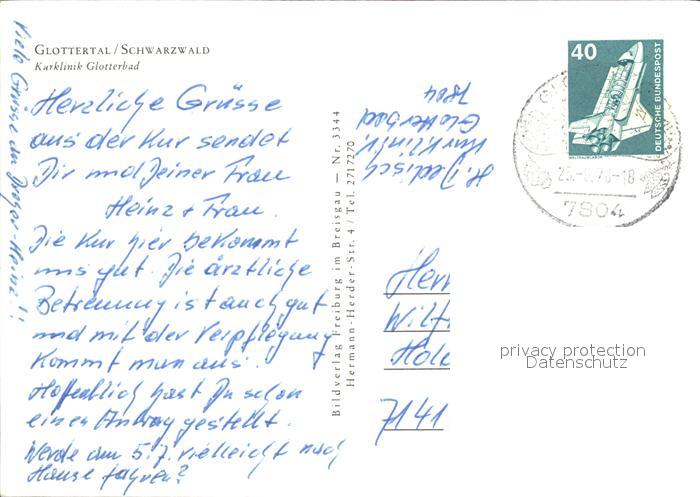 GLOTTERTAL / SCHWARZWALD
Kurklinik Glotterbad
Herzliche Grüsse
aus der Kur sendet
Dir und Deiner Frau
Heinz + Frau.
Die Kur hier bekommt
uns gut. Die ärztliche
Betreuung ist auch gut
und mit der Verpflegung
kommt man aus.
Hoffentlich hast Du schon
einen Antrag gestellt.
Werde am 5.7. vielleicht nach
Hause fahren?
Viele Grüsse an
Heinz!!
Bildverlag Freiburg im Breisgau — Nr. 3344
Hermann-Herder-Str. 4 / Tel. 2717270
H.
Kurklinik
Glotterbad
7804
40
DEUTSCHE BUNDESPOST
WELTRAUMLABOR
7804
Herr
Wilf
7141
privacy protection
Datenschutz